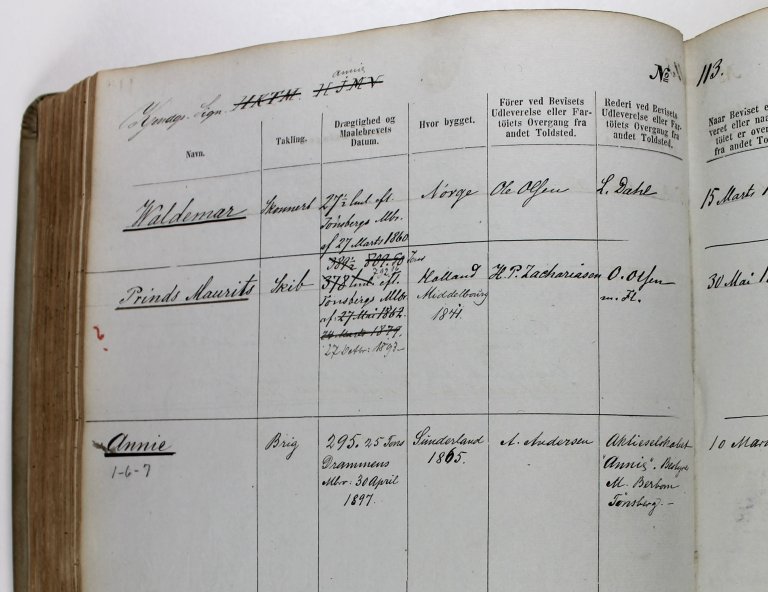 annie
Kjendgs. Sign. HKTM. HJMV
No
113.
Navn.
Takling.
Drægtighed og
Maalebrevets
Datum.
Hvor bygget.
Förer ved Bevisets
Udleverelse eller Far-
töiets Overgang fra
andet Toldsted.
Rederi ved Bevisets
Udleverelse eller Far-
töiets Overgang fra
andet Toldsted.
Naar Beviset e
veret eller naa
töiet er over
fra andet To
Waldemar
Skonnert
27½ Cml. eft.
Tønsbergs Mbr.
af 27 Marts 1860
Norge
Ole Olsen
L. Dahl
15 Marts 1
Prinds Maurits
Skib
389½ 809.80 Tons
378½ Cml. eft.
Tønsbergs Mbr.
af 27 Mai 1862
24 Marts 1879.
27 Octbr: 1893.-
Holland
Middelburg
1841.
H. P. Zachariasen
O. Olsen
m. Fl.
30 Mai 1
Annie
1-6-7
Brig
295.25 Tons
Drammens
Mbr: 30 April
1897.
Sunderland
1865.
A. Andersen
Aktieselskabet
"Annie". Bestyr
M. Berbom
Tønsberg.-
10 Mar